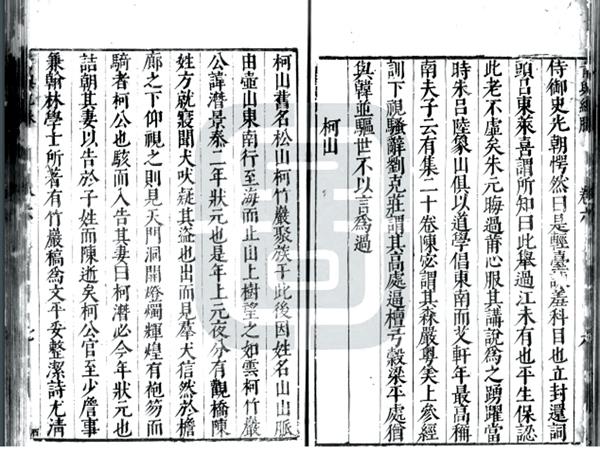 侍御史光朝愕然曰是輕臺諫羞科目也立封還詞
頭呂東萊喜謂所知曰此舉過江未有也平生保認
此老不虛矣朱元晦過莆心服其講說為之踴躍當
時朱呂陸象山俱以道學倡東南而艾軒年最高稱
南夫子云有集二十卷陳宓謂其森嚴奧美上參經
訓下視騷辭劉克莊謂其高處逼檀弓穀梁平處猶
與韓並驅世不以言為過
柯山
柯山舊名松山柯竹巖聚族于此後因姓名山山脈
由壺山東南行至海而止山上樹望之如雲柯竹巖
公諱潛景泰二年狀元也是年上元夜分有觀橋陳
姓方就寢聞犬吠疑其盜也出而見羣犬信然於檐
廊之下仰視之則見天門洞開燈燭輝煌有袍笏而
騎者柯公也駭而入告其妻曰柯潛必今年狀元也
詰朝其妻以告於子姓而陳逝矣柯公官至少詹事
兼翰林學士所著有竹巖稿為文平妥整潔詩尤清